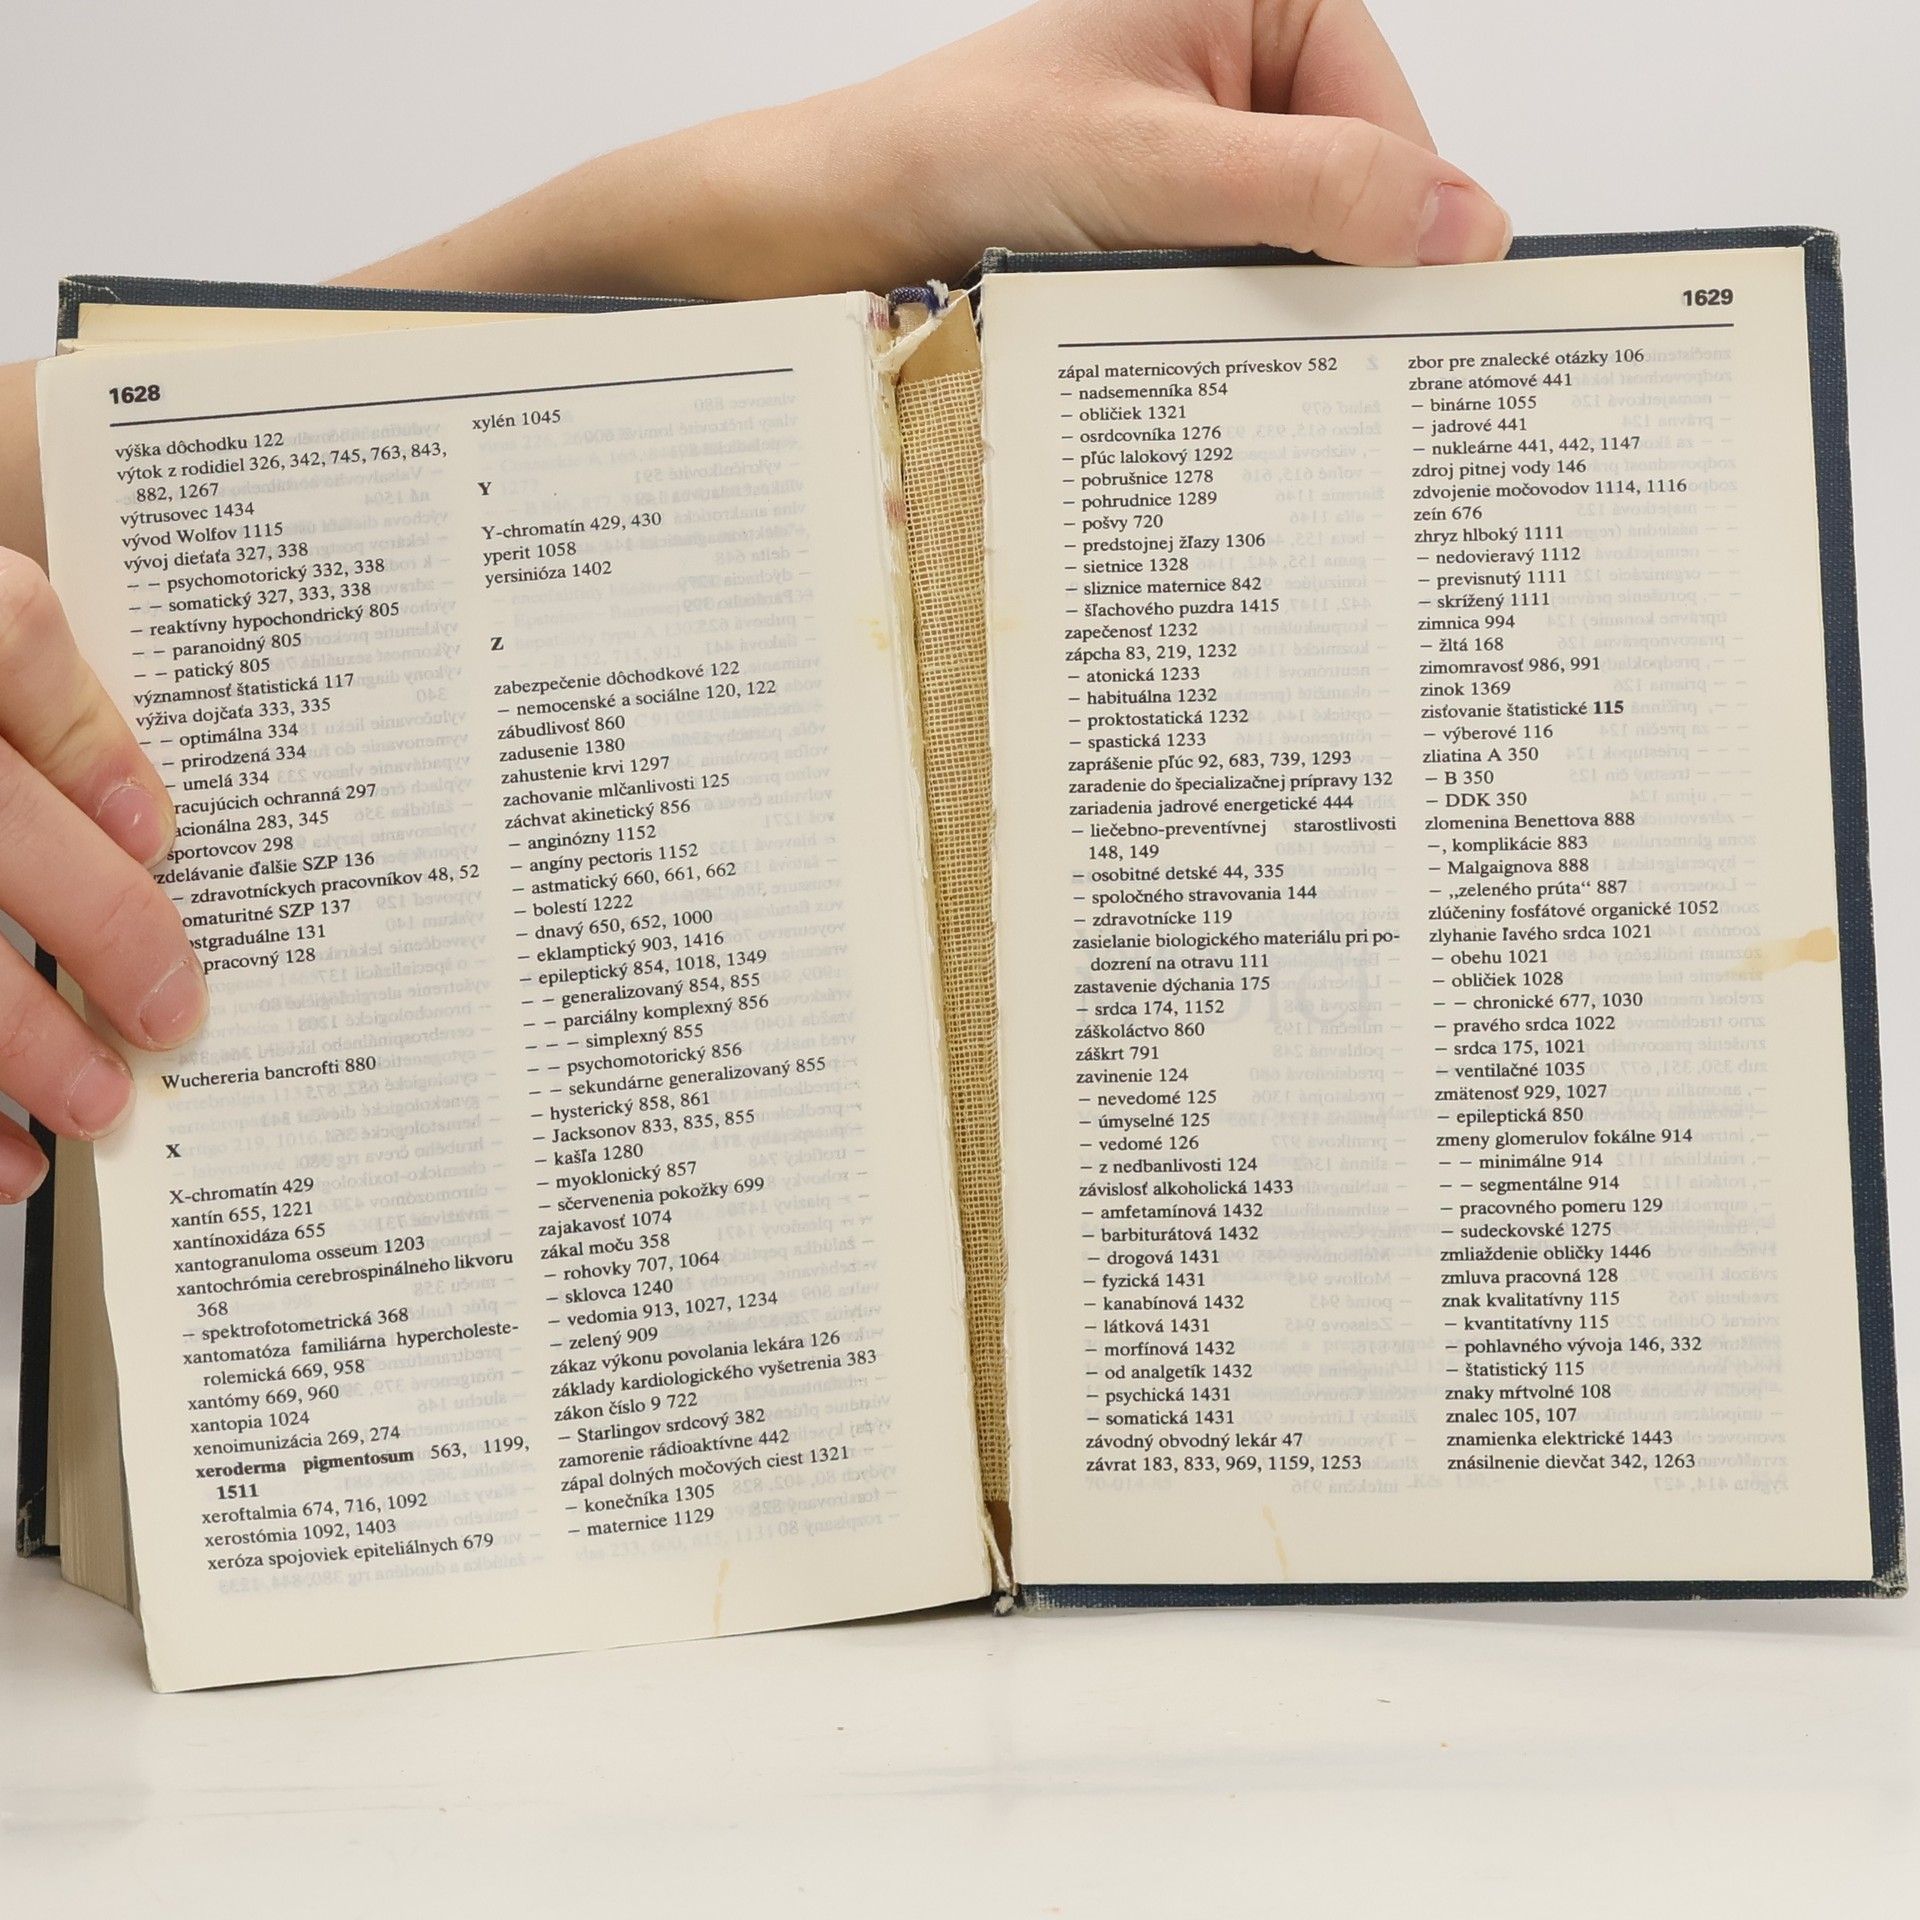 1628
výška dôchodku 122
výtok z rodidiel 326, 342, 745, 763, 843,
882, 1267
výtrusovec 1434
vývod Wolfov 1115
vývoj dieťaťa 327, 338
– – psychomotorický 332, 338
– – somatický 327, 333, 338
– reaktívny hypochondrický 805
– – paranoidný 805
– – patický 805
významnosť štatistická 117
výživa dojčaťa 333, 335
– – optimálna 334
– – prirodzená 334
– umelá 334
racujúcich ochranná 297
acionálna 283, 345
športovcov 298
zdelávanie ďalšie SZP 136
– zdravotníckych pracovníkov 48, 52
omaturitné SZP 137
ostgraduálne 131
pracovný 128
Wuchereria bancrofti 880
X
X-chromatín 429
xantín 655, 1221
xantínoxidáza 655
xantogranuloma osseum 1203
xantochrómia cerebrospinálneho likvoru
368
– spektrofotometrická 368
xantomatóza familiárna hypercholeste-
rolemická 669, 958
xantómy 669, 960
xantopia 1024
xenoimunizácia 269, 274
xeroderma pigmentosum 563, 1199,
1511
xeroftalmia 674, 716, 1092
xerostómia 1092, 1403
xeróza spojoviek epiteliálnych 679
xylén 1045
Y
Y-chromatín 429, 430
yperit 1058
yersinióza 1402
Z
zabezpečenie dôchodkové 122
– nemocenské a sociálne 120, 122
zábudlivosť 860
zadusenie 1380
zahustenie krvi 1297
zachovanie mlčanlivosti 125
záchvat akinetický 856
– anginózny 1152
– angíny pectoris 1152
– astmatický 660, 661, 662
– bolestí 1222
– dnavý 650, 652, 1000
– eklamptický 903, 1416
– epileptický 854, 1018, 1349
– – generalizovaný 854, 855
– – parciálny komplexný 856
– – – simplexný 855
– – psychomotorický 856
– – sekundárne generalizovaný 855
– hysterický 858, 861
– Jacksonov 833, 835, 855
– kašľa 1280
– myoklonický 857
– sčervenenia pokožky 699
zajakavosť 1074
zákal moču 358
– rohovky 707, 1064
– sklovca 1240
– vedomia 913, 1027, 1234
– zelený 909
zákaz výkonu povolania lekára 126
základy kardiologického vyšetrenia 383
zákon číslo 9 722
– Starlingov srdcový 382
zamorenie rádioaktívne 442
zápal dolných močových ciest 1321
– konečníka 1305
– maternice 1129
1629
zápal maternicových príveskov 582
– nadsemenníka 854
– obličiek 1321
– osrdcovníka 1276
– pľúc lalokový 1292
– pobrušnice 1278
– pohrudnice 1289
– pošvy 720
– predstojnej žľazy 1306
– sietnice 1328
– sliznice maternice 842
– šľachového puzdra 1415
zapečenosť 1232
zápcha 83, 219, 1232
– atonická 1233
– habituálna 1232
– proktostatická 1232
– spastická 1233
zaprášenie pľúc 92, 683, 739, 1293
zaradenie do špecializačnej prípravy 132
zariadenia jadrové energetické 444
– liečebno-preventívnej starostlivosti
148, 149
– osobitné detské 44, 335
– spoločného stravovania 144
– zdravotnícke 119
zasielanie biologického materiálu pri po-
dozrení na otravu 111
zastavenie dýchania 175
– srdca 174, 1152
záškoláctvo 860
záškrt 791
zavinenie 124
– nevedomé 125
– úmyselné 125
– vedomé 126
– z nedbanlivosti 124
závislosť alkoholická 1433
– amfetamínová 1432
– barbiturátová 1432
– drogová 1431
– fyzická 1431
– kanabínová 1432
– látková 1431
– morfínová 1432
– od analgetík 1432
– psychická 1431
– somatická 1431
závodný obvodný lekár 47
závrat 183, 833, 969, 1159, 1253
zbor pre znalecké otázky 106
zbrane atómové 441
– binárne 1055
– jadrové 441
– nukleárne 441, 442, 1147
zdroj pitnej vody 146
zdvojenie močovodov 1114, 1116
zeín 676
zhryz hlboký 1111
– nedovieravý 1112
– previsnutý 1111
– skrížený 1111
zimnica 994
– žltá 168
zimomravosť 986, 991
zinok 1369
zisťovanie štatistické 115
– výberové 116
zliatina A 350
– B 350
– DDK 350
zlomenina Benettova 888
–, komplikácie 883
– Malgaignova 888
– „zeleného prúta“ 887
zlúčeniny fosfátové organické 1052
zlyhanie ľavého srdca 1021
– obehu 1021
– obličiek 1028
– – chronické 677, 1030
– pravého srdca 1022
– srdca 175, 1021
– ventilačné 1035
zmätenosť 929, 1027
– epileptická 850
zmeny glomerulov fokálne 914
– – minimálne 914
– – segmentálne 914
– pracovného pomeru 129
– sudeckovské 1275
zmliaždenie obličky 1446
zmluva pracovná 128
znak kvalitatívny 115
– kvantitatívny 115
– pohlavného vývoja 146, 332
– štatistický 115
znaky mŕtvolné 108
znalec 105, 107
znamienka elektrické 1443
znásilnenie dievčat 342, 1263